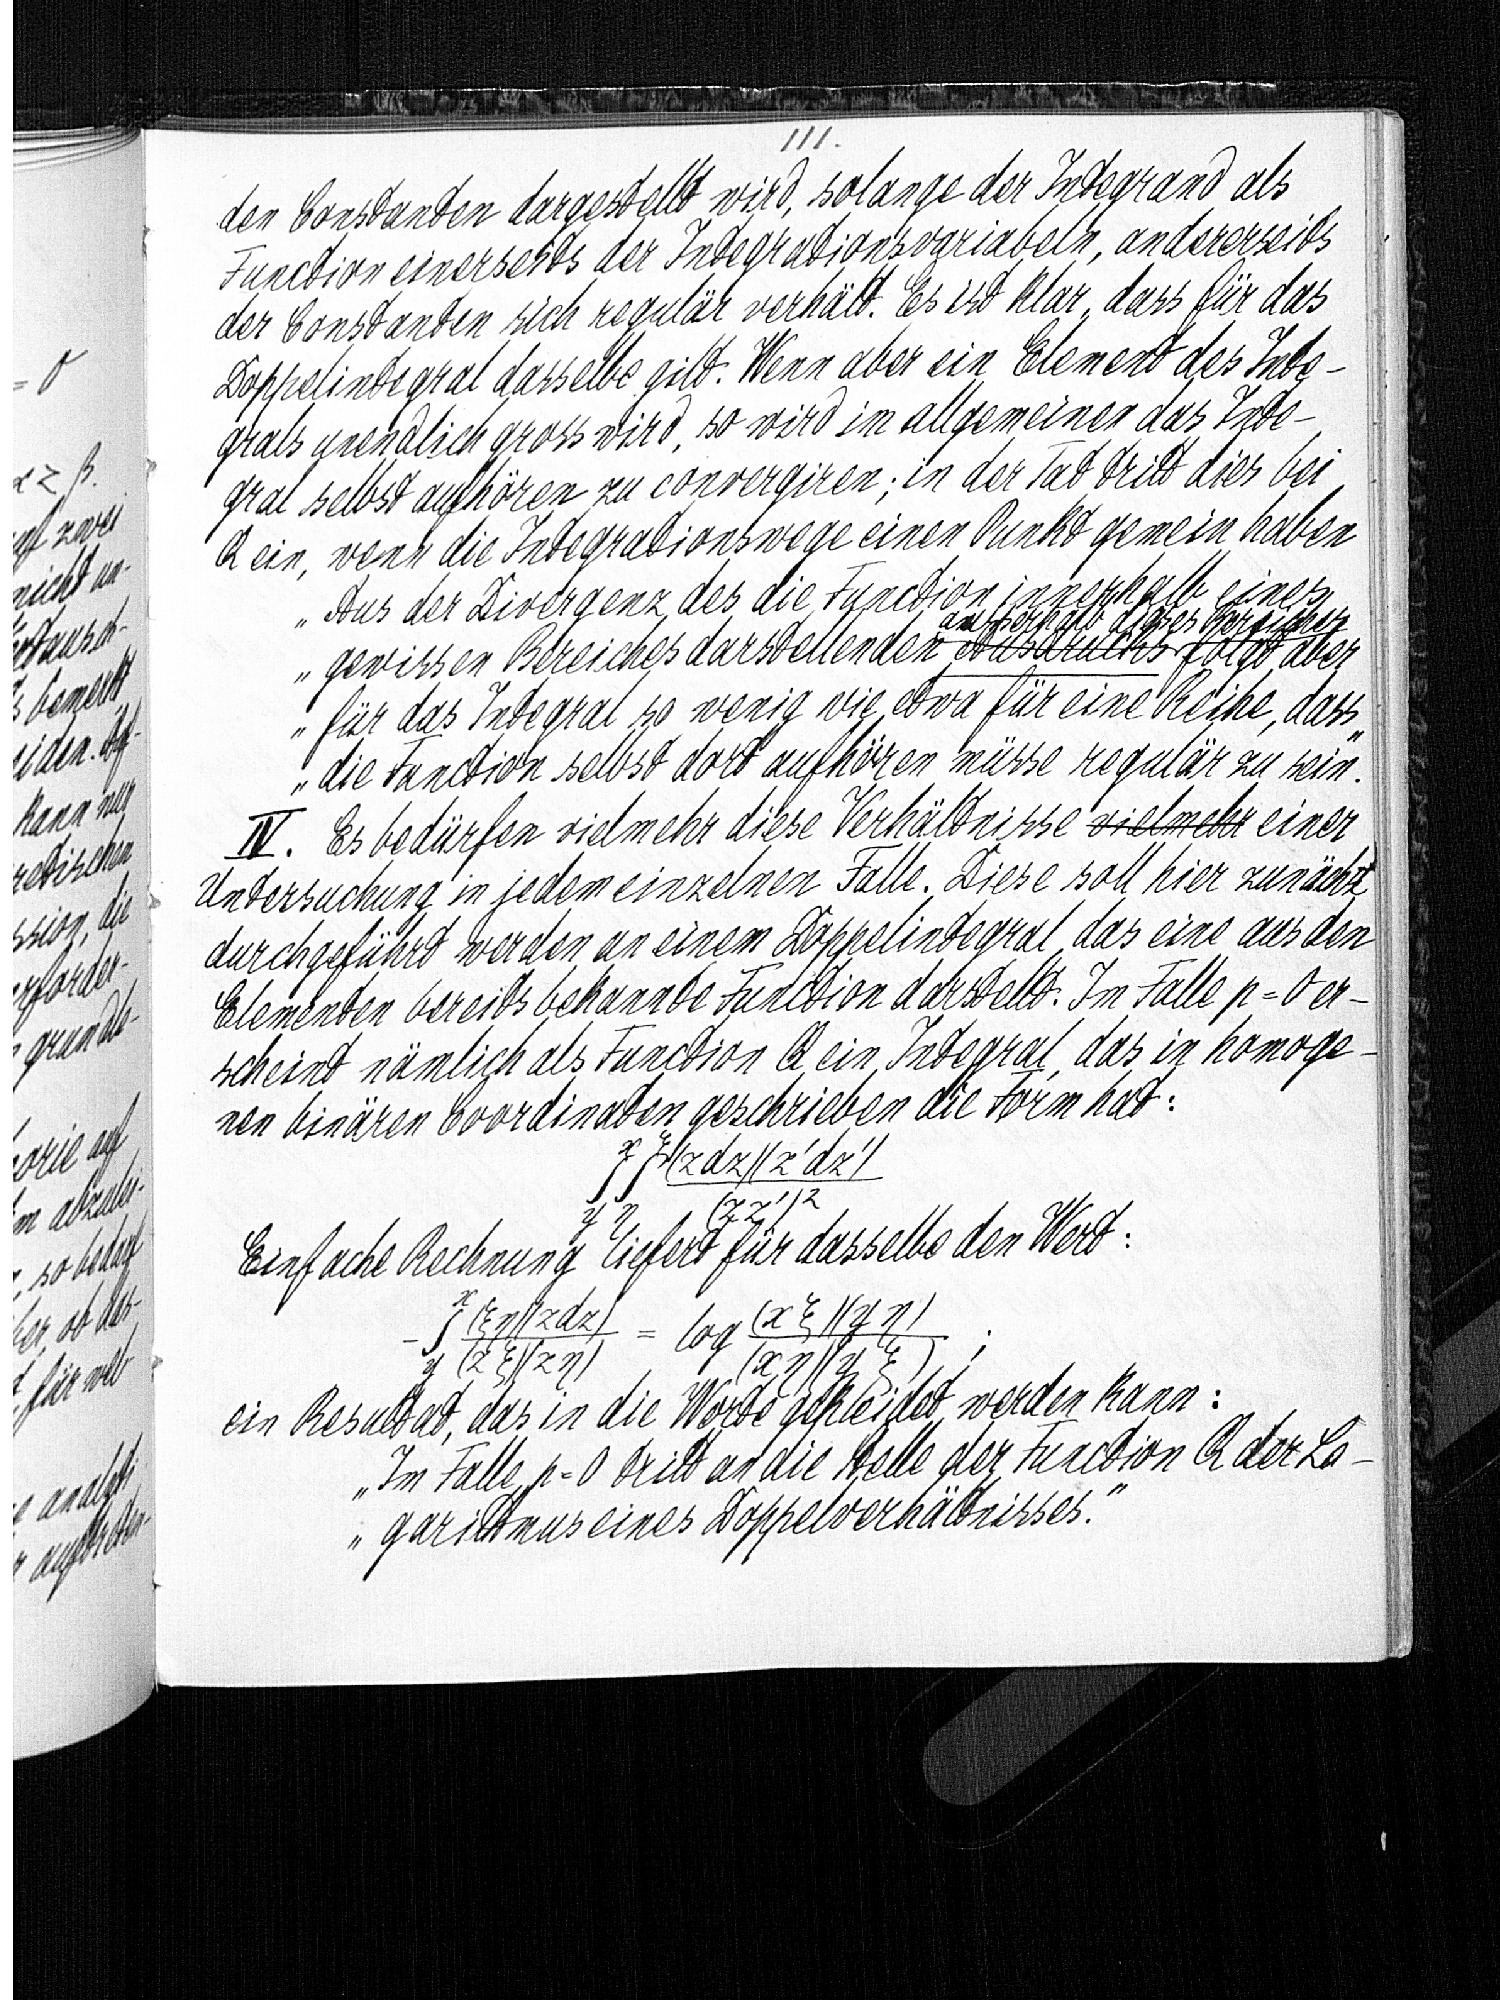 111.
den Constanten dargestellt wird, solange der Integrand als
Function einerseits der Integrationsvariabeln, andererseits
der Constanten sich regulär verhält. Es ist klar, dass für das
Doppelintegral dasselbe gilt. Wenn aber ein Element des Inte-
grals unendlich gross wird, so wird im allgemeinen das Inte-
gral selbst aufhören zu convergiren; in der Tat tritt dies bei
Q ein, wenn die Integrationswege einen Punkt gemein haben
„Aus der Divergenz des die Function innerhalb eines
ausserhalb dieses Bereiches
„gewissen Bereiches darstellenden Ausdrucks folgt aber
„für das Integral so wenig wie etwa für eine Reihe, dass
„die Function selbst dort aufhören müsse regulär zu sein.“
IV. Es bedürfen vielmehr diese Verhältnisse vielmehr einer
Untersuchung in jedem einzelnen Falle. Diese soll hier zunächst
durchgeführt werden an einem Doppelintegral, das eine aus den
Elementen bereits bekannte Function darstellt. Im Falle p=0 er-
scheint nämlich als Function Q ein Integral, das in homoge-
nen binären Coordinaten geschrieben die Form hat:
∫_y^x ∫_η^ξ (zdz)(z'dz') / (zz')²
Einfache Rechnung liefert für dasselbe den Wert:
-∫_y^x (ξη)(zdz) / (zξ)(zη) = log (xξ)(yη) / (xη)(yξ) ;
ein Resultat, das in die Worte gekleidet werden kann:
„Im Falle p=0 tritt an die Stelle der Function Q der Lo-
„garithmus eines Doppelverhältnisses.“
= 0
xz β.
zwei
nicht un-
bemerkt
eiden. Auf-
kann nun
retischen
ssion, die
erforder-
grunde-
orie auf
m abzulei-
, so bedarf
er, ob das-
, für wel-
analyti-
auftreten-